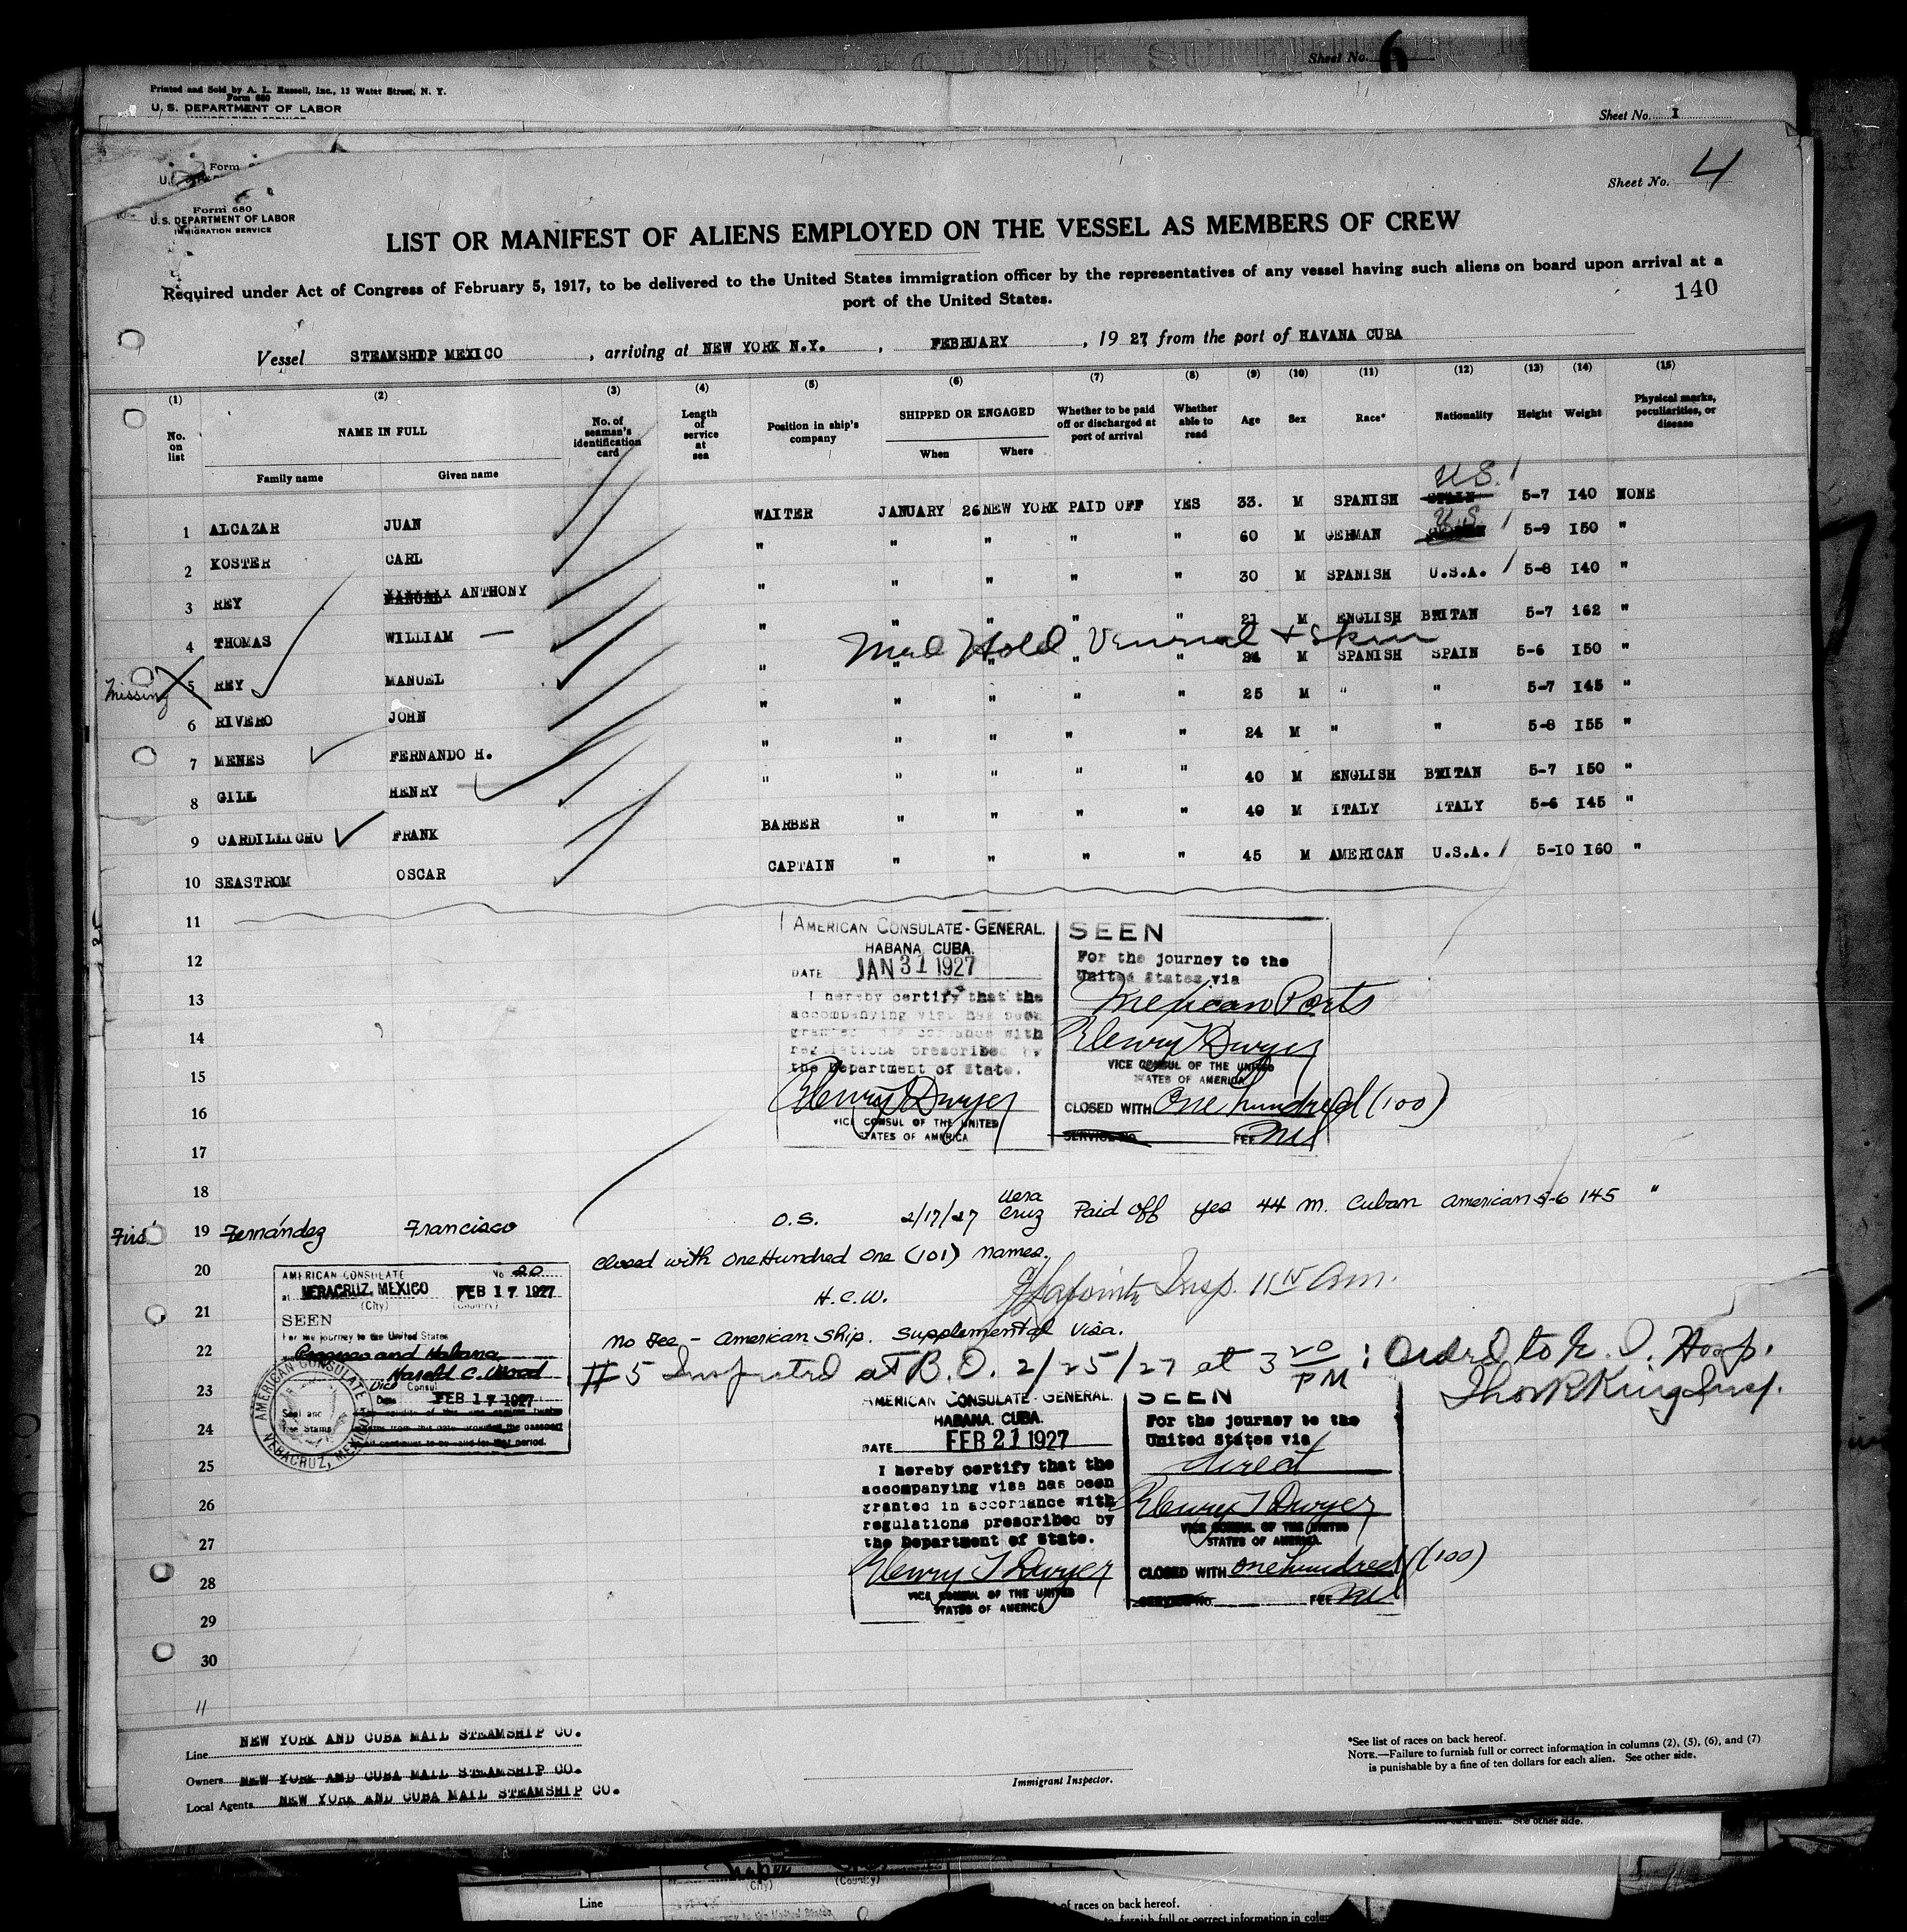 Sheet No. 6
Printed and Sold by A. L. Russell, Inc., 13 Water Street, N. Y.
Form 680
U. S. DEPARTMENT OF LABOR
Sheet No. I
Form
Sheet No. 4
Form 680
U. S. DEPARTMENT OF LABOR
IMMIGRATION SERVICE
LIST OR MANIFEST OF ALIENS EMPLOYED ON THE VESSEL AS MEMBERS OF CREW
Required under Act of Congress of February 5, 1917, to be delivered to the United States immigration officer by the representatives of any vessel having such aliens on board upon arrival at a
port of the United States.
140
Vessel STEAMSHIP MEXICO , arriving at NEW YORK N.Y. , FEBRUARY , 19 27 from the port of HAVANA CUBA
(1) (2) (3) (4) (5) (6) (7) (8) (9) (10) (11) (12) (13) (14) (15)
No. on list NAME IN FULL No. of seaman's identification card Length of service at sea Position in ship's company SHIPPED OR ENGAGED Whether to be paid off or discharged at port of arrival Whether able to read Age Sex Race* Nationality Height Weight Physical marks, peculiarities, or disease
Family name Given name When Where
U.S.
1 ALCAZAR JUAN WAITER JANUARY 26 NEW YORK PAID OFF YES 33. M SPANISH SPAIN 5-7 I40 NONE
U.S.
2 KOSTER CARL " " " " " 60 M GERMAN 5-9 I50 "
3 REY MANUEL ANTHONY " " " " " 30 M SPANISH U.S.A. 5-8 I40 "
4 THOMAS WILLIAM — " " " " " 21 M ENGLISH BRITAN 5-7 162 "
Med Hold Venereal + Skin
Missing 5 REY MANUEL " " " " " 24 M SPANISH SPAIN 5-6 I50 "
6 RIVERO JOHN " " " " " 25 M " " 5-7 I45 "
7 MENES FERNANDO H. " " " " " 24 M " " 5-8 I55 "
8 GILL HENRY " " " " " 40 M ENGLISH BRITAN 5-7 I50 "
9 CARDILLICHO FRANK BARBER " " " " 40 M ITALY ITALY 5-6 I45 "
10 SEASTROM OSCAR CAPTAIN " " " " 45 M AMERICAN U.S.A. 5-I0 I60 "
11
12
13
14
15
16
17
18
AMERICAN CONSULATE-GENERAL.
HABANA, CUBA.
DATE JAN 31 1927
I hereby certify that the
accompanying visa has been
granted in accordance with
regulations prescribed by
the Department of State.
Henry T Dwyer
VICE CONSUL OF THE UNITED
STATES OF AMERICA
SEEN
For the journey to the
United States via
Mexican Ports
Henry T Dwyer
VICE CONSUL OF THE UNITED
STATES OF AMERICA
CLOSED WITH One hundred (100)
SERVICE NO. FEE Nil
19 Fernández Francisco O.S. 2/17/27 Vera Cruz Paid off yes 44 m. Cuban American 5-6 145 "
20
21
22
23
24
25
26
27
28
29
30
Closed with One Hundred One (101) names.
H.C.W.
Insp. 11 15 am.
No Fee - American Ship. Supplemental Visa.
#5 Inspected at B.O. 2/25/27 at 3 20 PM : Ordered to E. I. Hosp.
Thos R King Insp.
AMERICAN CONSULATE No 20
at VERACRUZ, MEXICO FEB 17 1927
(City) (Country)
SEEN
For the journey to the United States
Progreso and Habana
Harold C. Wood
Vice Consul
Date FEB 17 1927
AMERICAN CONSULATE
VERACRUZ, MEXICO
Seal and
Fee Stamp
AMERICAN CONSULATE-GENERAL.
HABANA, CUBA.
DATE FEB 21 1927
I hereby certify that the
accompanying visa has been
granted in accordance with
regulations prescribed by
the Department of State.
Henry T Dwyer
VICE CONSUL OF THE UNITED
STATES OF AMERICA
SEEN
For the journey to the
United States via
direct
Henry T Dwyer
VICE CONSUL OF THE UNITED
STATES OF AMERICA.
CLOSED WITH one hundred (100)
SERVICE NO. FEE Nil
11
Line NEW YORK AND CUBA MAIL STEAMSHIP CO.
Owners NEW YORK AND CUBA MAIL STEAMSHIP CO.
Local Agents NEW YORK AND CUBA MAIL STEAMSHIP CO.
Immigrant Inspector.
*See list of races on back hereof.
NOTE.—Failure to furnish full or correct information in columns (2), (5), (6), and (7)
is punishable by a fine of ten dollars for each alien. See other side.
each alien. See other side.
(City) (County)
Line
of races on back hereof.
to furnish full or correct information in colum